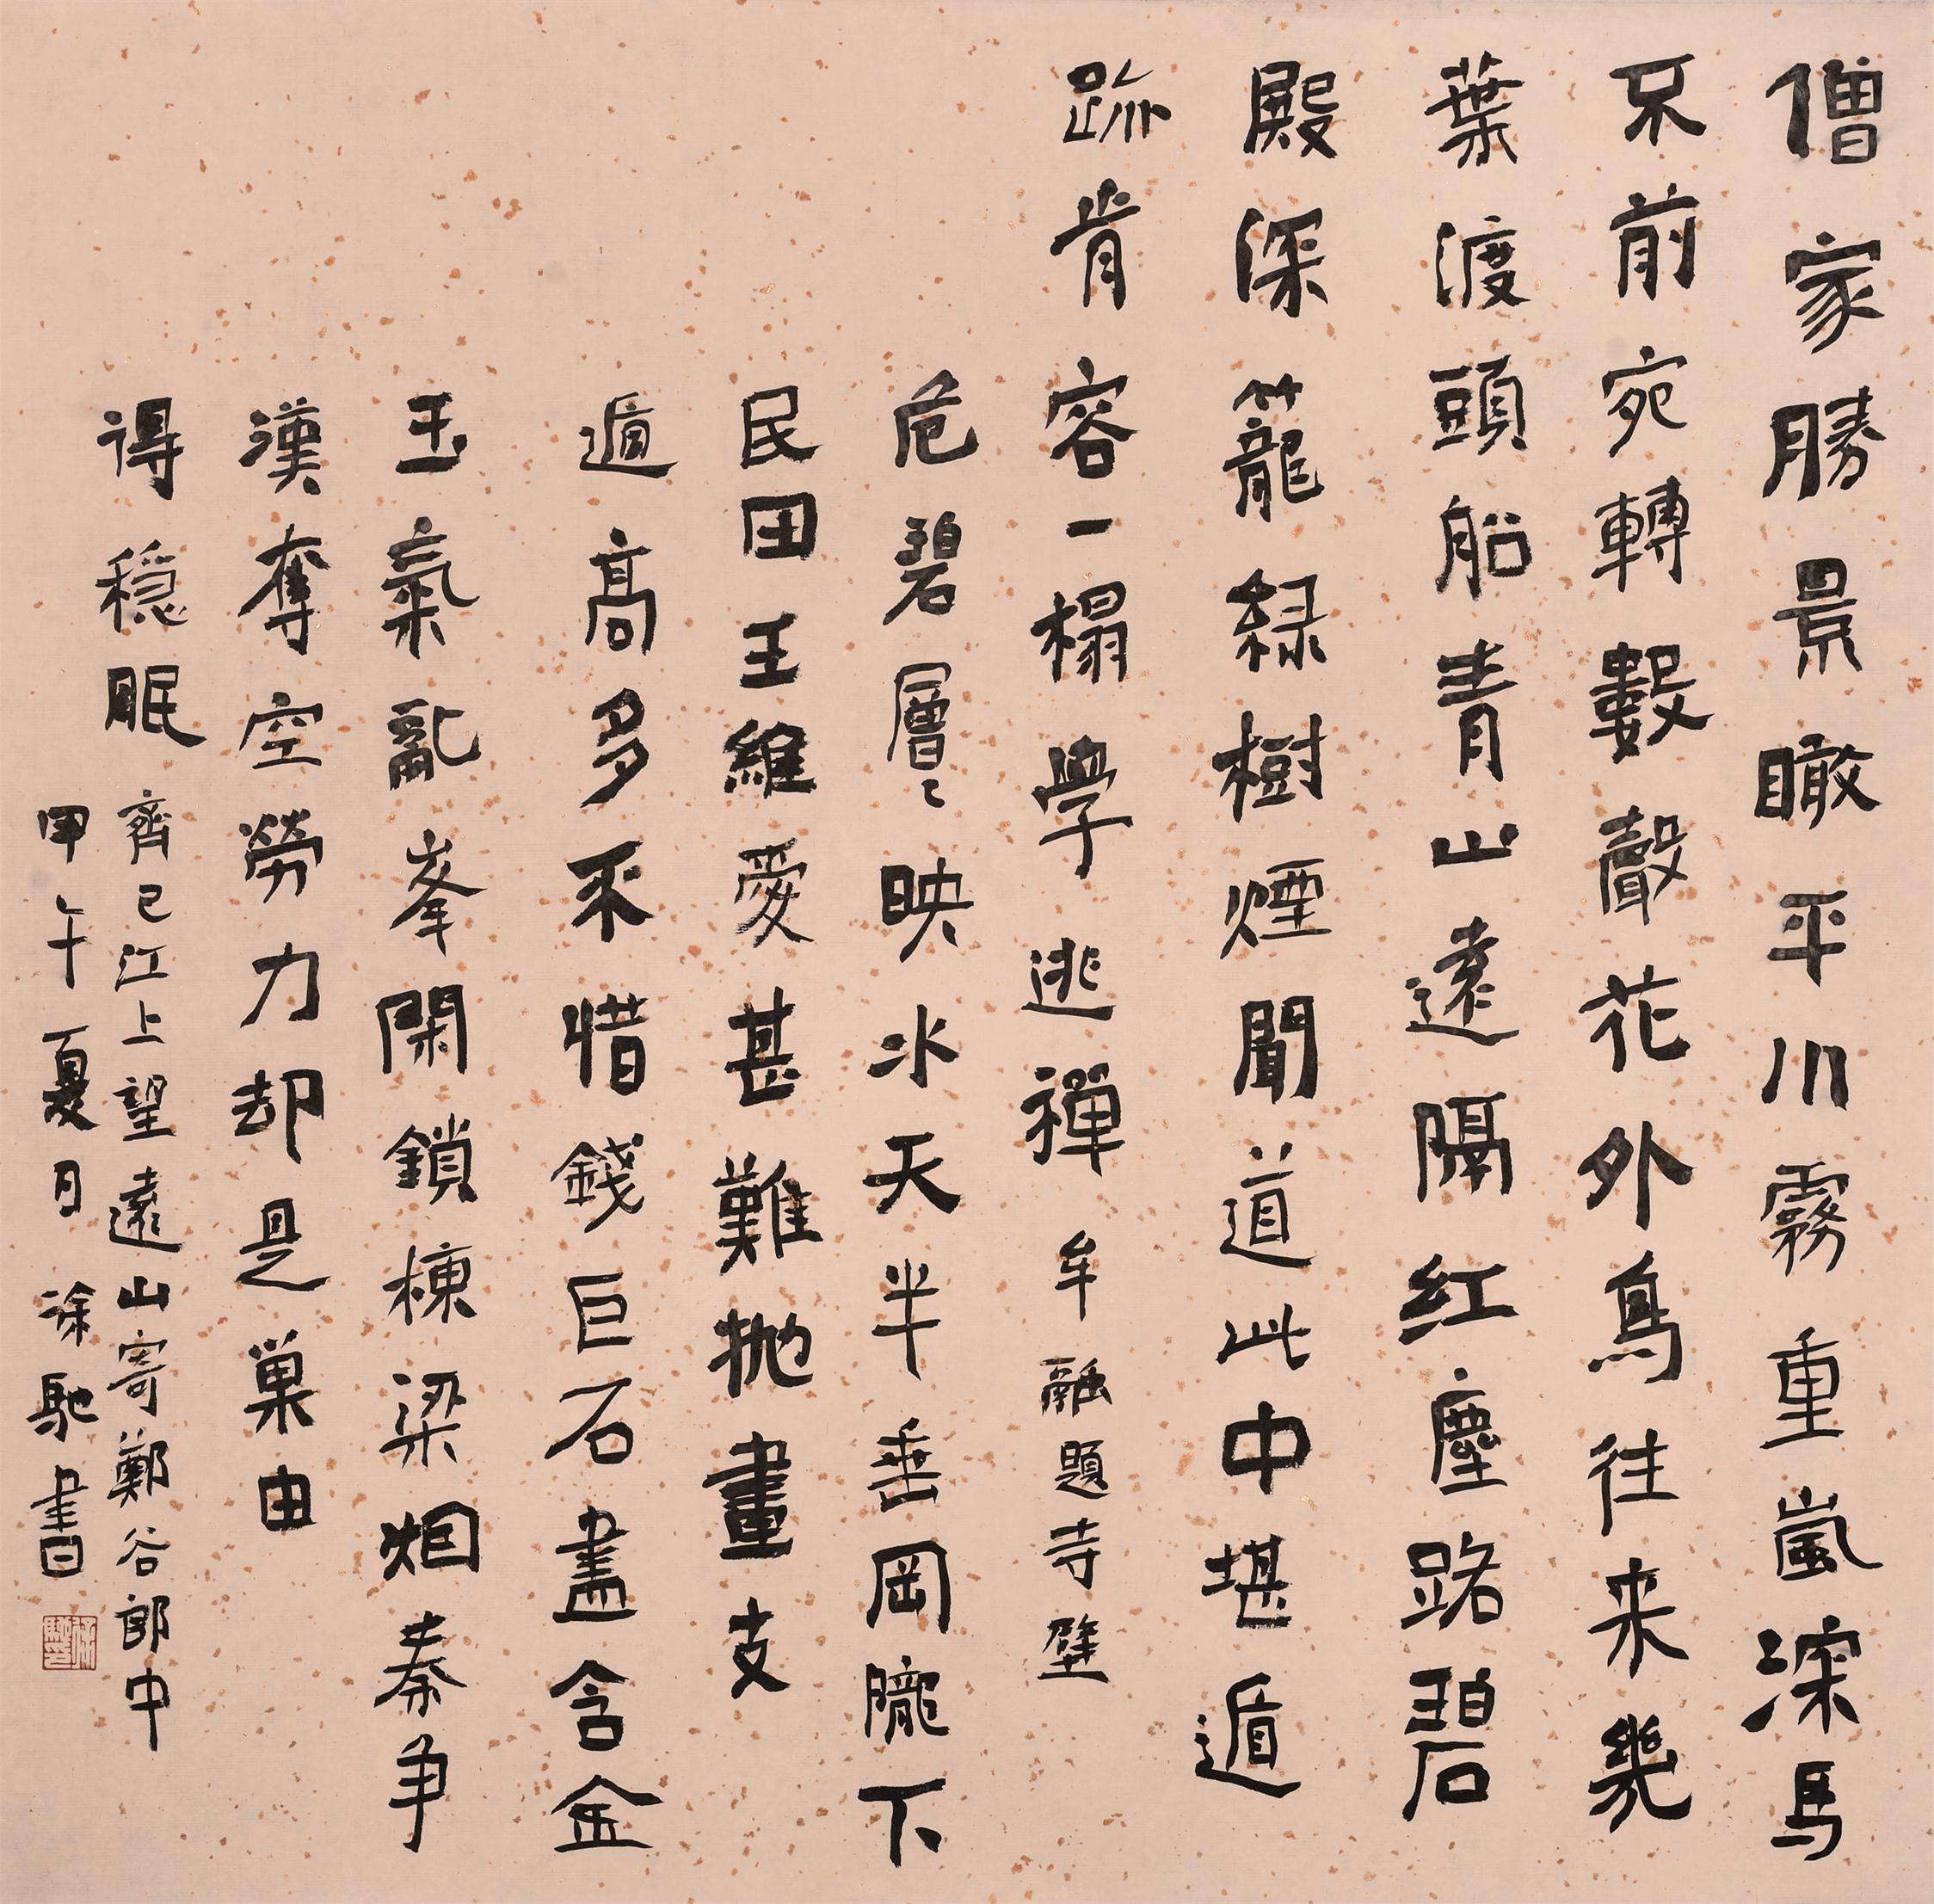 僧家勝景瞰平川霧重嵐深馬
不前宛轉數聲花外鳥往来幾
葉渡頭船青山遠隔红塵路碧
殿深籠緑樹煙聞道此中堪遁
跡肯容一榻學逃禪 牟融題寺壁
危碧層〻映水天半垂岡朧下
民田王維愛甚難拋畫支
遁高多不惜錢巨石盡含金
玉氣亂峯閑鎖棟梁烟秦争
漢奪空勞力却是巢由
得穩眠 齊己江上望遠山寄鄭谷郎中
甲午夏月 涂馳書